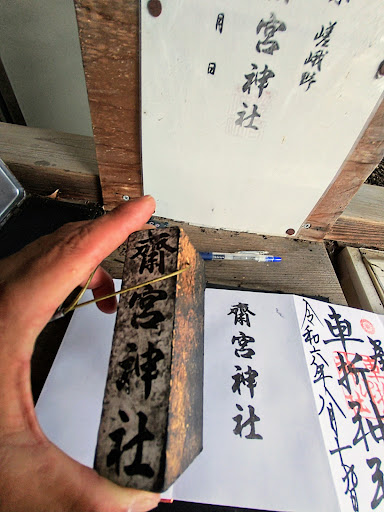 嵯峨野
宮神社
月 日
齋宮神社
齋宮神社
車折神社
令和六年八月十